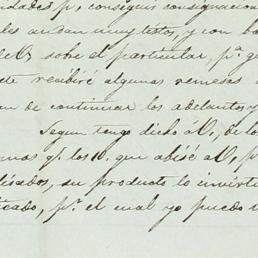 idades pª conseguir consignacion
les andan muy listos, y con ba
de V. sobre el particular, pª q
te recibiré algunas remesas
an de continuar los adelantos y
Segun tengo dicho á V., de lo
unas q. los 10. que abisé a V, p
lisados, su producto lo invirti
icado, pr. el cual yo puedo